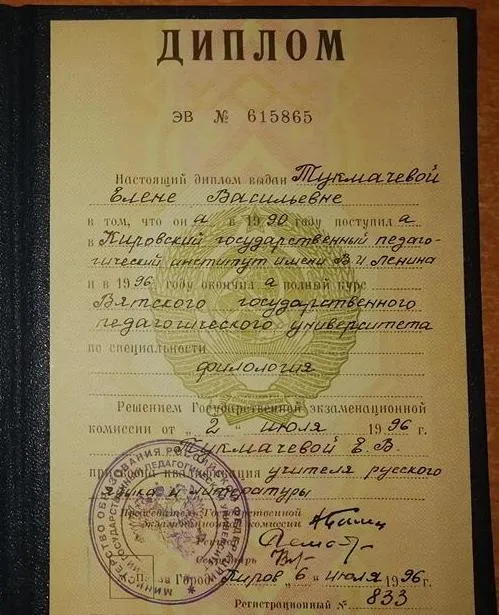 ДИПЛОМ
ЭВ № 615865
Настоящий диплом выдан Тукмачевой
Елене Васильевне
в том, что он а в 1990 году поступил а
в Кировский государственный педаго-
гический институт имени В.И. Ленина
и в 1996 году окончил а полный курс
Вятского государственного
педагогического университета
по специальности
филология
Решением Государственной экзаменационной
комиссии от „2“ июля 1996 г.
Тукмачевой Е.В.
присвоена квалификация учителя русского
языка и литературы
Председатель Государственной
экзаменационной комиссии
Секретарь
Город Киров „6“ июля 1996 г.
Регистрационный № 833